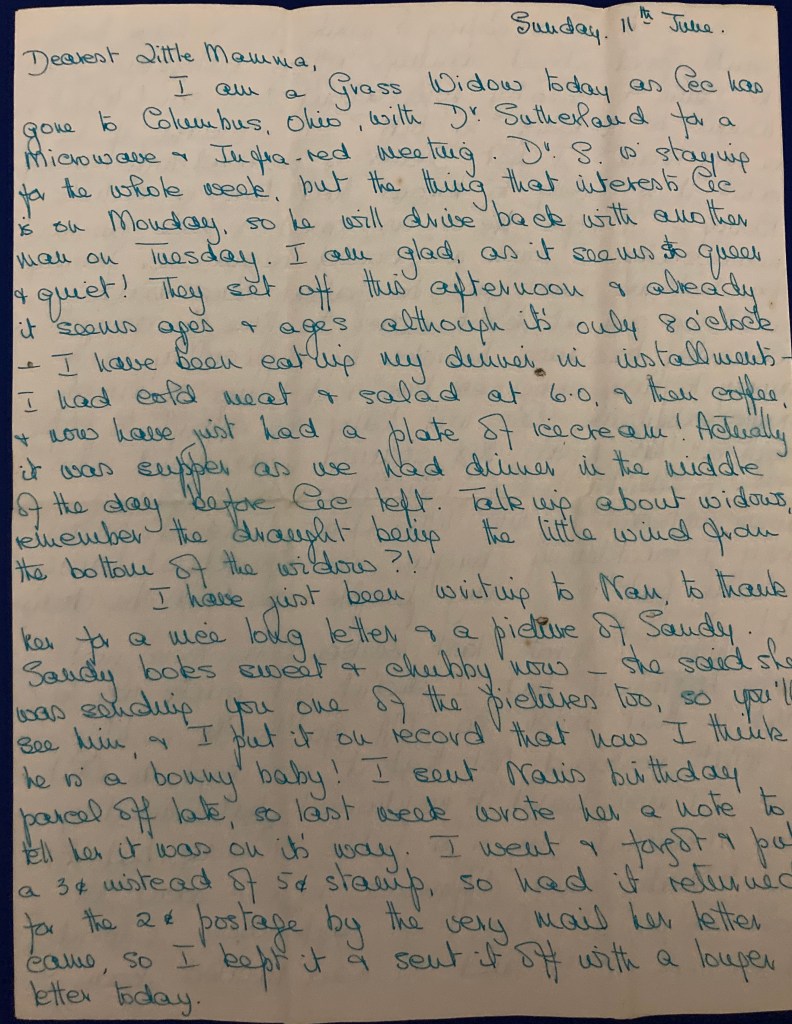 Sunday. 11th June.
Dearest Little Mamma,
I am a Grass Widow today as Cec has
gone to Columbus, Ohio, with Dr. Sutherland for a
Microwave & Infra-red meeting. Dr. S. is staying
for the whole week, but the thing that interests Cec
is on Monday, so he will drive back with another
man on Tuesday. I am glad, as it seems so queer
& quiet! They set off this afternoon & already
it seems ages & ages although it's only 8 o'clock
- I have been eating my dinner in installments -
I had cold meat & salad at 6.0, & then coffee,
& now have just had a plate of icecream! Actually
it was supper as we had dinner in the middle
of the day before Cec left. Talking about widows,
remember the draught being the little wind from
the bottom of the widow?!
I have just been writing to Nan, to thank
her for a nice long letter & a picture of Sandy.
Sandy looks sweet & chubby now - she said she
was sending you one of the pictures too, so you'll
see him, & I put it on record that now I think
he is a bonny baby! I sent Nan's birthday
parcel off late, so last week wrote her a note to
tell her it was on it's way. I went & forgot & put
a 3¢ instead of 5¢ stamp, so had it returned
for the 2¢ postage by the very mail her letter
came, so I kept it & sent it off with a longer
letter today.